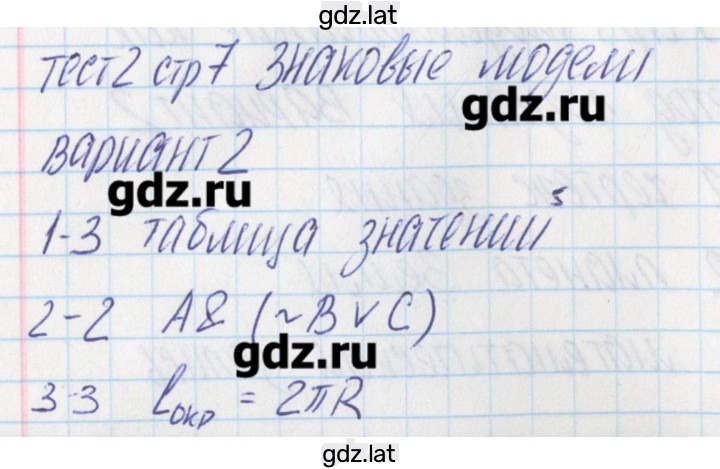 gdz.lat
тест 2 стр 7 знаковые модели
gdz.ru
вариант 2
gdz.ru
1-3 таблица значений
2-2 A & (~B v C)
gdz.ru
3-3 lокр = 2πR
gdz.lat